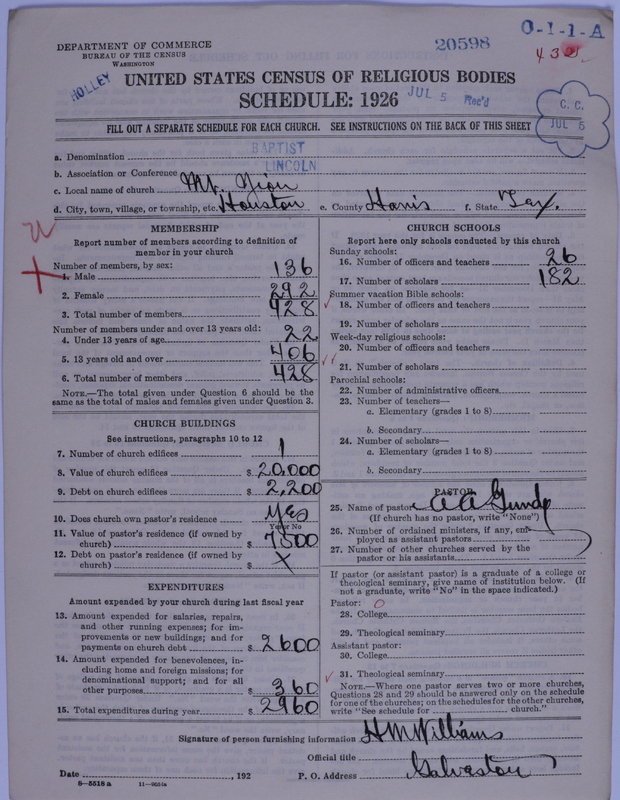 DEPARTMENT OF COMMERCE
BUREAU OF THE CENSUS
WASHINGTON
20598
O-1-1-A
HOLLEY
UNITED STATES CENSUS OF RELIGIOUS BODIES
SCHEDULE: 1926
JUL 5 Rec'd
C. C.
JUL 5
FILL OUT A SEPARATE SCHEDULE FOR EACH CHURCH. SEE INSTRUCTIONS ON THE BACK OF THIS SHEET
a. Denomination BAPTIST
b. Association or Conference LINCOLN
c. Local name of church Mt. Zion
d. City, town, village, or township, etc. Houston e. County Harris f. State Tex.
MEMBERSHIP
Report number of members according to definition of member in your church
Number of members, by sex:
1. Male 136
2. Female 292
3. Total number of members 428
Number of members under and over 13 years old:
4. Under 13 years of age 22
5. 13 years old and over 406
6. Total number of members 428
NOTE.—The total given under Question 6 should be
same as the total of males and females given under Question 3.
CHURCH BUILDINGS
See instructions, paragraphs 10 to 12
7. Number of church edifices 1
8. Value of church edifices $ 20,000
9. Debt on church edifices $ 2,200
10. Does church own pastor's residence Yes
Yes or No
11. Value of pastor's residence (if owned by
church) $ 7500
12. Debt on pastor's residence (if owned by
church) $ X
EXPENDITURES
Amount expended by your church during last fiscal year
13. Amount expended for salaries, repairs,
and other running expenses; for im-
provements or new buildings; and for
payments on church debt $ 2600
14. Amount expended for benevolences, in-
cluding home and foreign missions; for
denominational support; and for all
other purposes $ 360
15. Total expenditures during year $ 2960
CHURCH SCHOOLS
Report here only schools conducted by this church
Sunday schools:
16. Number of officers and teachers 26
17. Number of scholars 182
Summer vacation Bible schools:
18. Number of officers and teachers
19. Number of scholars
Week-day religious schools:
20. Number of officers and teachers
21. Number of scholars
Parochial schools:
22. Number of administrative officers
23. Number of teachers—
a. Elementary (grades 1 to 8)
b. Secondary
24. Number of scholars—
a. Elementary (grades 1 to 8)
b. Secondary
PASTOR
25. Name of pastor
(If church has no pastor, write "None")
26. Number of ordained ministers, if any, em-
ployed as assistant pastors
27. Number of other churches served by the
pastor or his assistants
If pastor (or assistant pastor) is a graduate of a college or
theological seminary, give name of institution below. (If
not a graduate, write "No" in the space indicated.)
Pastor: O
28. College
29. Theological seminary
Assistant pastor:
30. College
31. Theological seminary
NOTE.—Where one pastor serves two or more churches,
Questions 28 and 29 should be answered only on the schedule
for one of the churches; on the schedules for the other churches,
write "See schedule for church."
Signature of person furnishing information H M Williams
Official title
Date , 192 P. O. Address Galveston
8—5518 a